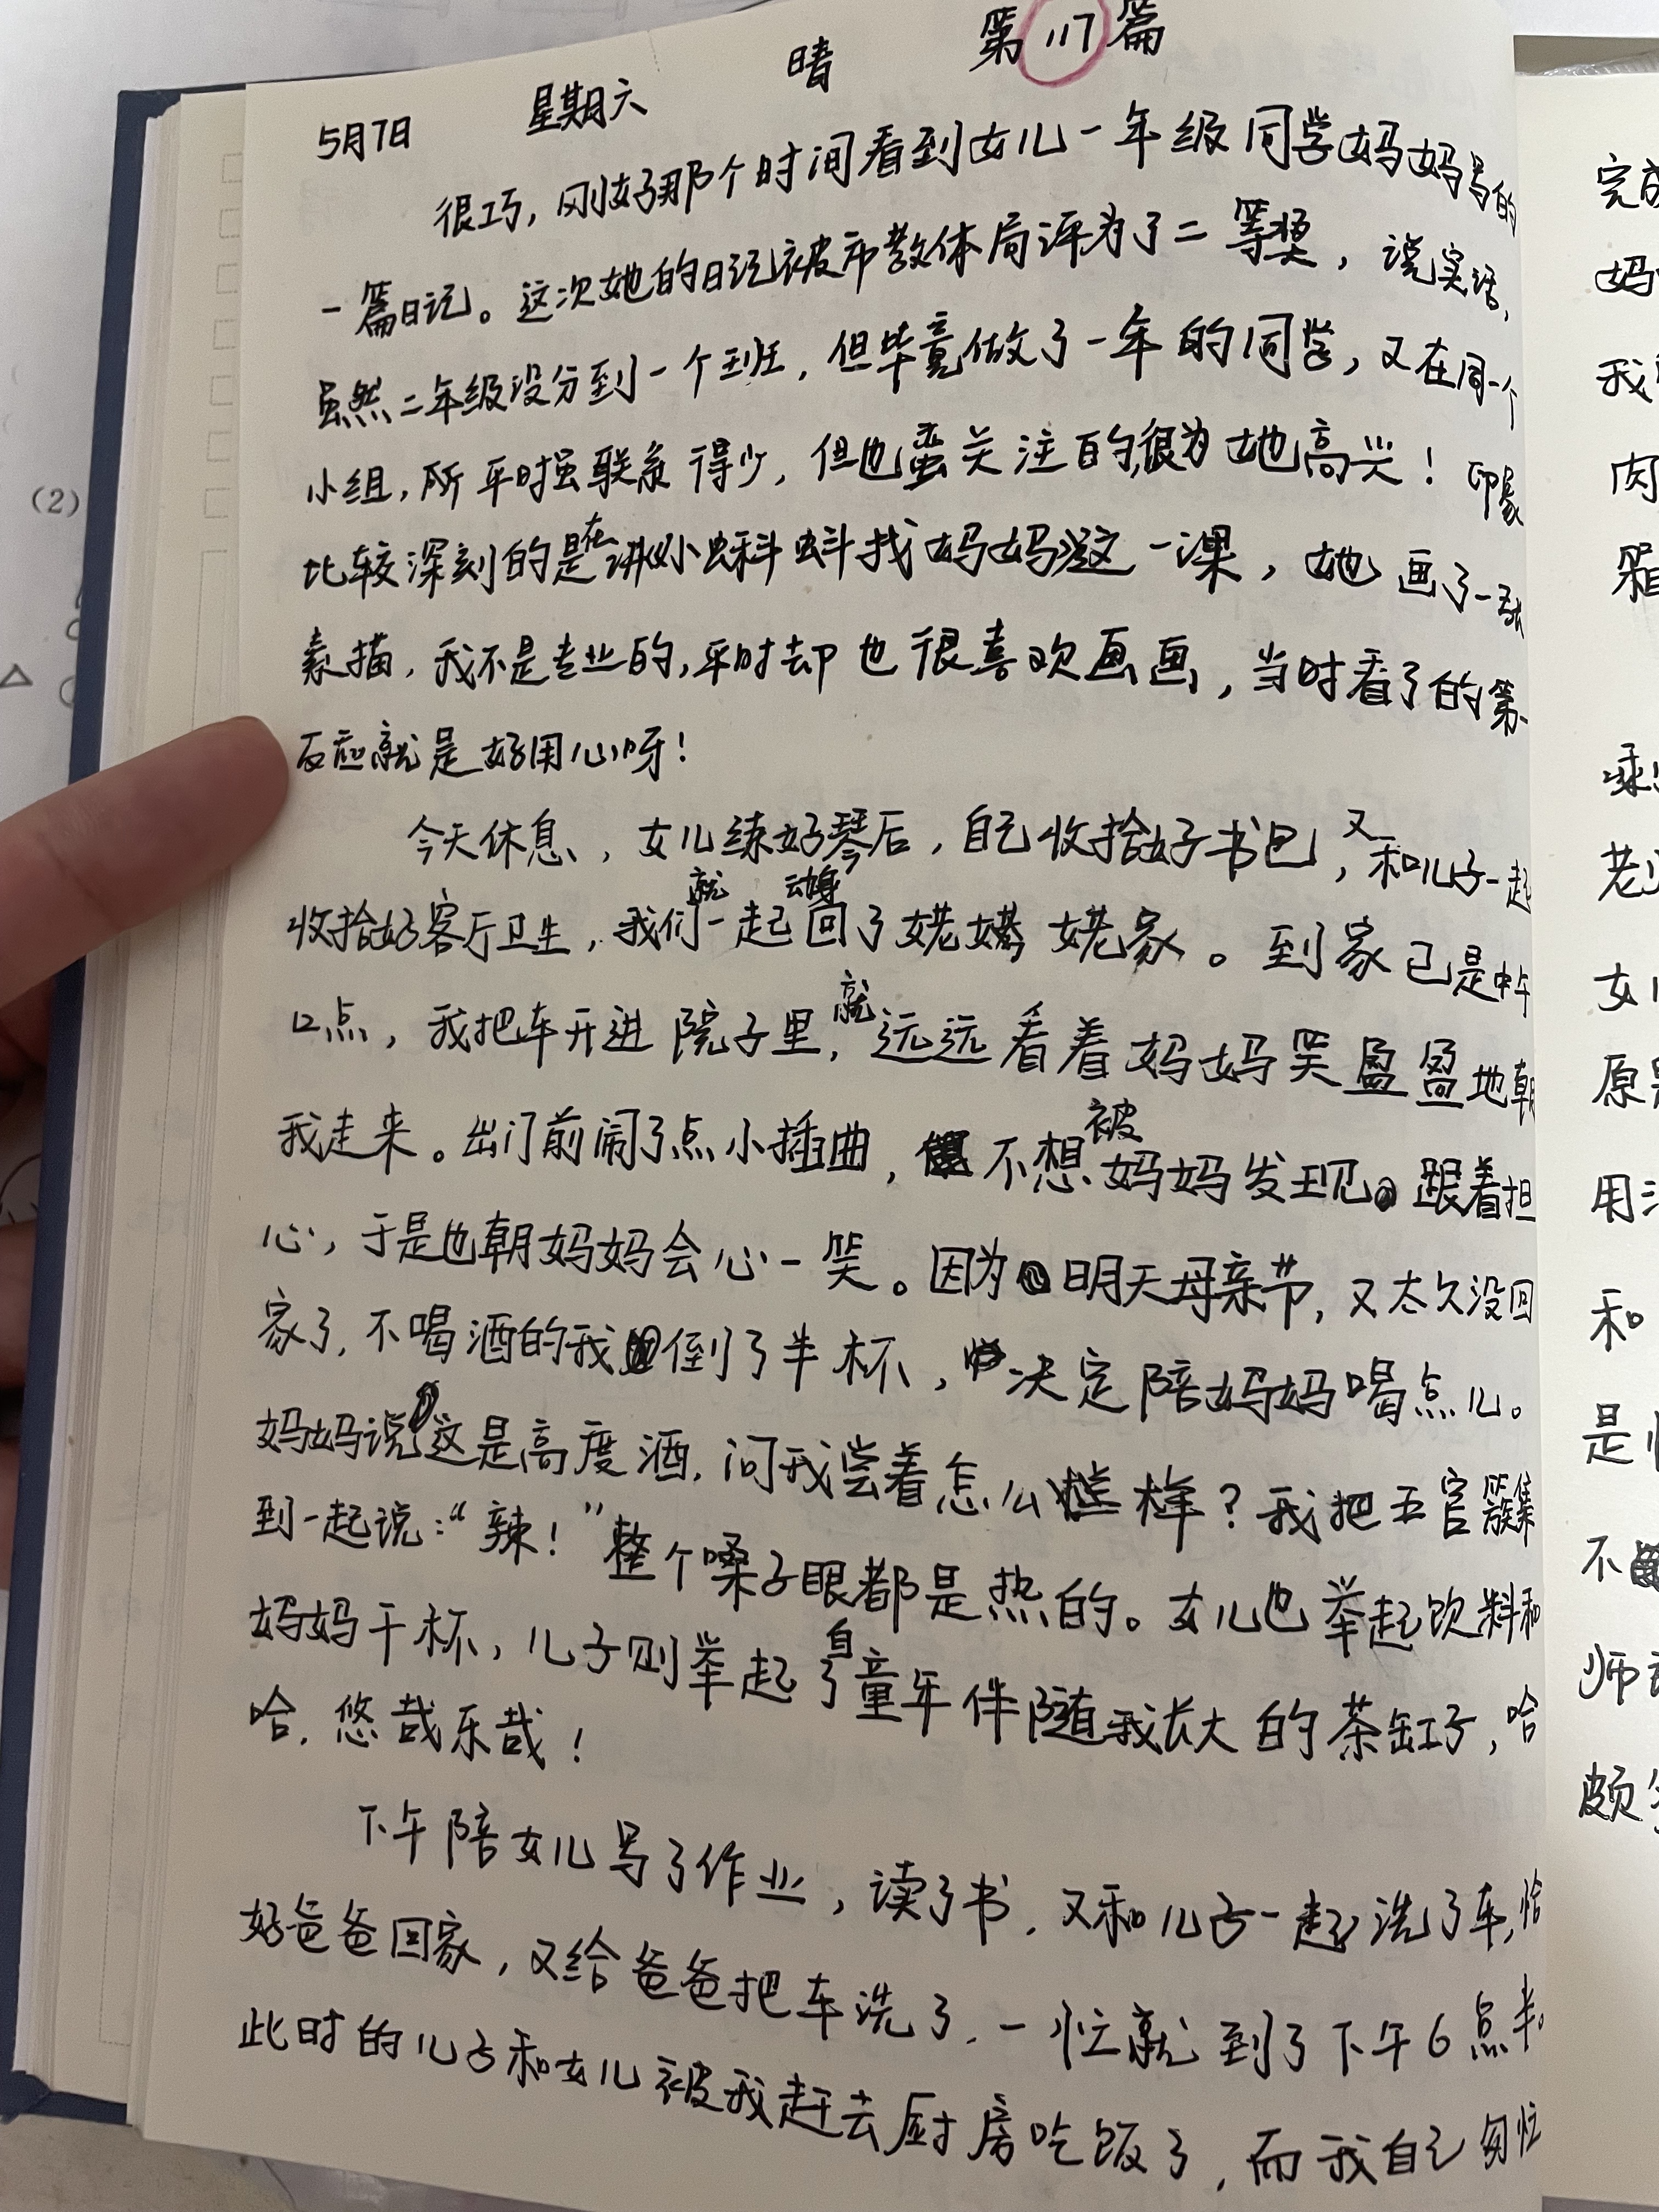 5月7日 星期六 晴 第117篇
很巧，刚好那个时间看到女儿一年级同学妈妈写的
一篇日记。这次她的日记被市教体局评为了二等奖，说实话，
虽然二年级没分到一个班，但毕竟做了一年的同学，又在同一个
小组，所平时虽联系得少，但也蛮关注的，很为她高兴！印象
比较深刻的是在讲小蝌蚪找妈妈这一课，她画了一张
素描，我不是专业的，平时却也很喜欢画画，当时看了的第一
反应就是好用心呀！
今天休息，女儿练好琴后，自己收拾好书包，又和儿子一起
收拾好客厅卫生，我们就一起动身回了姥姥家。到家已是中午
12点，我把车开进院子里，就远远看着妈妈笑盈盈地朝
我走来。出门前闹了点小插曲，不想被妈妈发现。跟着担
心，于是也朝妈妈会心一笑。因为明天母亲节，又太久没回
家了，不喝酒的我倒了半杯，决定陪妈妈喝点儿。
妈妈说这是高度酒，问我尝着怎么样？我把五官簇集
到一起说：“辣！”整个嗓子眼都是热的。女儿也举起饮料和
妈妈干杯，儿子则举起了自童年伴随我长大的茶缸子，哈
哈，悠哉乐哉！
下午陪女儿写了作业，读了书，又和儿子一起洗了车，恰
好爸爸回家，又给爸爸把车洗了，一忙就到了下午6点半。
此时的儿子和女儿被我赶去厨房吃饭了，而我自己匆忙
完成
妈
我
肉
箱
老
女
原
用
和
是
不
师
颇
(2)